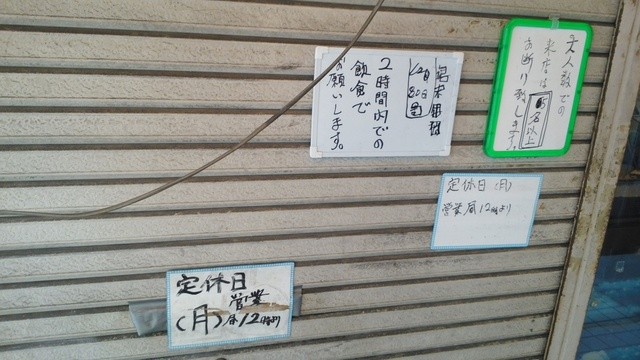 大人数での
来店は
5名以上
お断り致します。
2時間内での
飲食で
お願いします。
定休日(月)
営業昼12時より
定休日
(月)営業
昼12時より